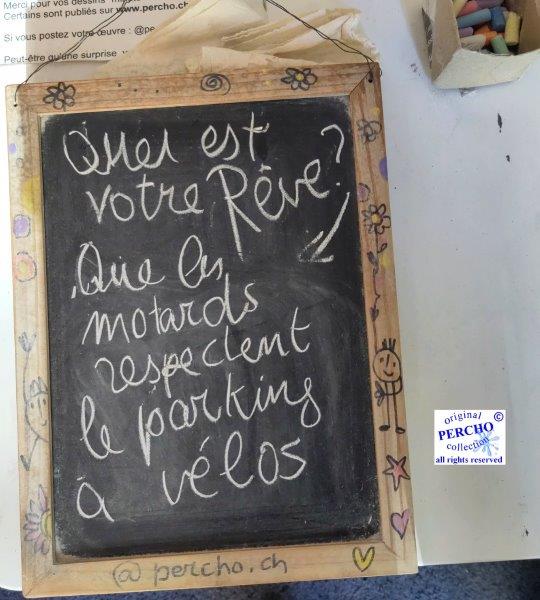 Merci pour vos dessins
Certains sont publiés sur www.percho.ch
Si vous postez votre œuvre : @pe
Peut-être qu'une surprise
Quel est
votre Rêve?
Que les
motards
respectent
le parking
à vélos
@percho.ch
original ©
PERCHO
collection
all rights reserved